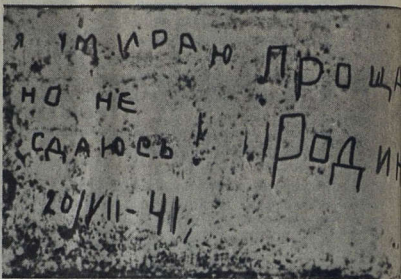 Я УМИРАЮ
НО НЕ
СДАЮСЬ!
20/VII-41,
ПРОЩА
РОДИН